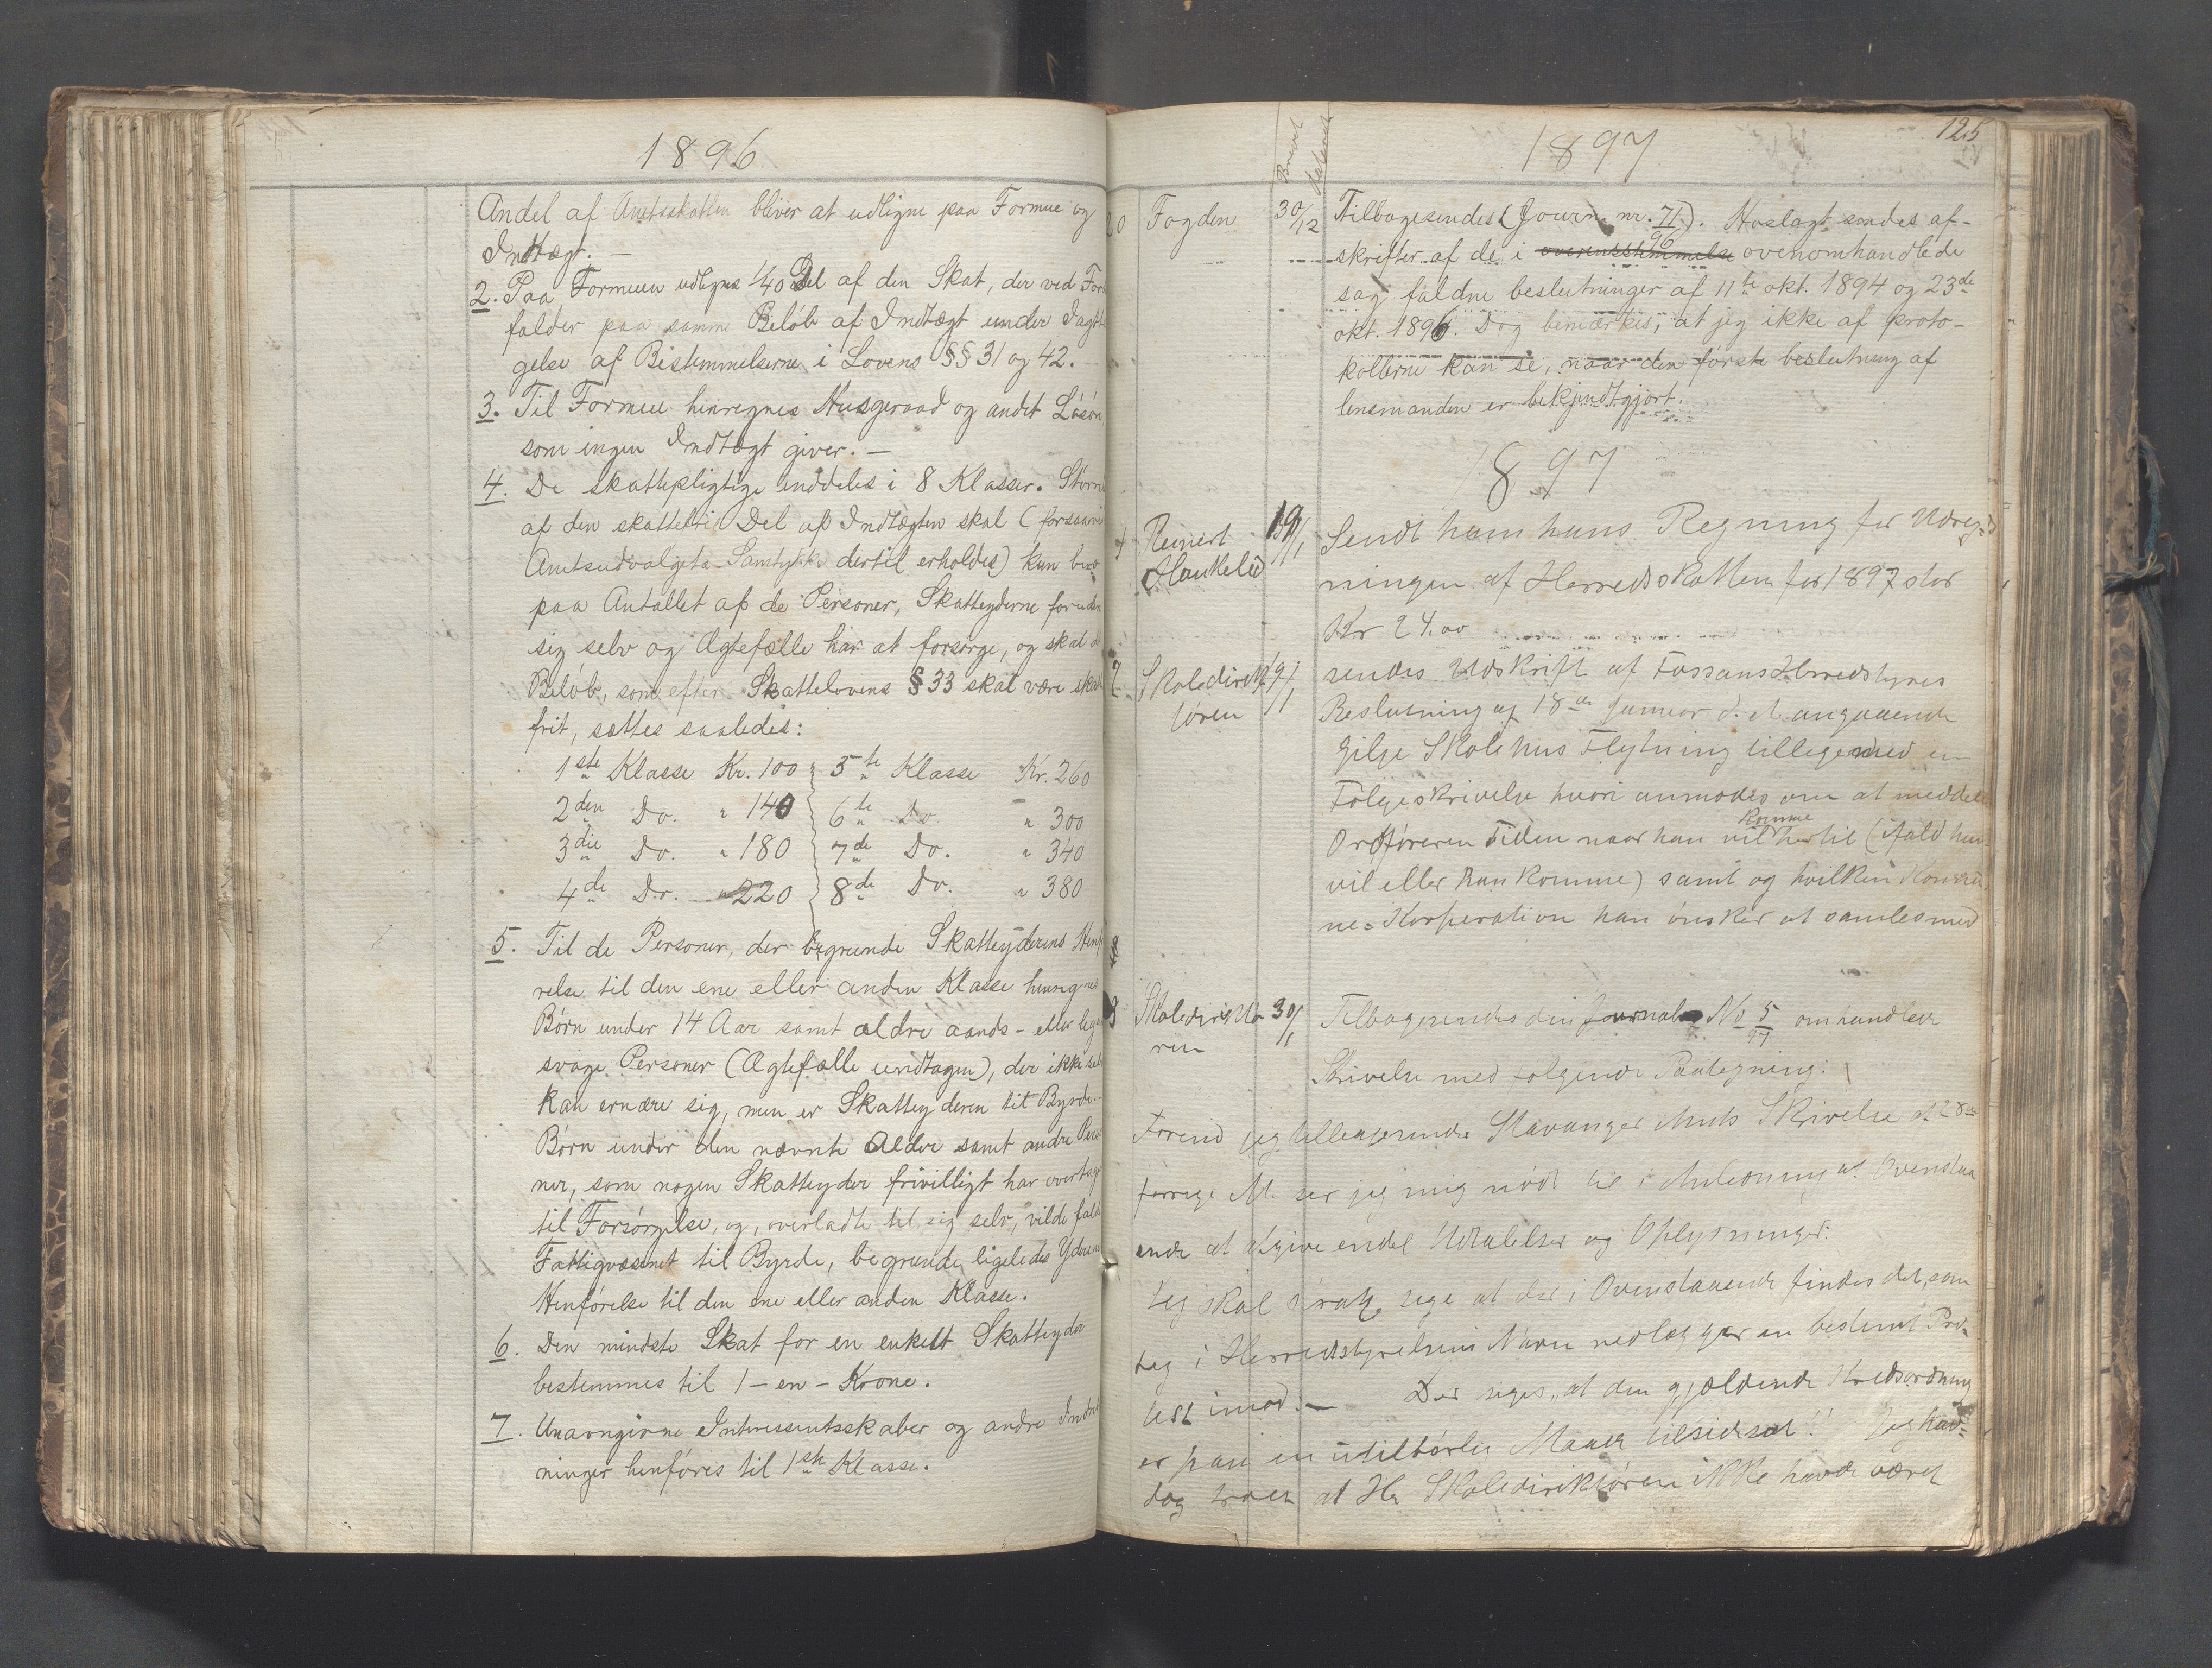 1896
Andel af Amtsskatten bliver at udligne paa Formue og
Indtægt. —
2. Paa Formuen udlignes 1/40 Del af den Skat, der ved For
falder paa samme Beløb af Indtægt under Iagtta
gelse af Bestemmelserne i Lovens §§ 31 og 42. —
3. Til Formue henregnes Husgeraad og andet Løsøre
som ingen Indtægt giver. —
4. De skattepligtige inddeles i 8 Klasser. Større
af den skattefri Del af Indtægten skal (forsaavi
Amtsudvalgets Samtykke dertil erholdes) kun bero
paa Antallet af de Personer, Skatteyderne foruden
sig selv og Ægtefælle har at forsørge, og skal de
Beløb, som efter Skattelovens § 33 skal være skatte
frit, sættes saaledes:
1ste Klasse Kr. 100 5te Klasse Kr. 260
2den Do. " 140 6te Do. " 300
3die Do. " 180 7de Do. " 340
4de Do. " 220 8de Do. " 380
5. Til de Personer, der begrunde Skatteyderens Henf
relse til den ene eller anden Klasse henregnes
Børn under 14 Aar samt ældre aands- eller lege
svage Personer (Ægtefælle undtagen), der ikke selv
kan ernære sig, men er Skatteyderen til Byrde.—
Børn under den nævnte Alder samt andre Perso
ner, som nogen Skatteyder frivilligt har overtag
til Forsørgelse, og, overladte til sig selv, vilde falde
Fattigvæsenet til Byrde, begrunde ligeledes Yderens
Henførelse til den ene eller anden Klasse.
6. Den mindste Skat for en enkelt Skatteyder
bestemmes til 1 – en – Krone.
7. Unavngivne Interessentskaber og andre Indret
ninger henføres til 1ste Klasse.
1897
125
Brevets Datum
20 Fogden 30/12 Tilbagesendes (Journ. nr. 71/96). Hoslagt sendes af-
skrifter af de i overensstemmelse ovenomhandlede
sag faldne beslutninger af 11te okt. 1894 og 23de
okt. 1896. Dog bemærkes, at jeg ikke af proto-
kollerne kan se, naar den første beslutning af
lensmanden er bekjendtgjort.
1897
Reinert Haukelid 19/1 Sendt ham hans Regning for Udreg=
ningen af Herredsskatten for 1897 stor
Kr 24.00
Skoledirektøren 19/1 sendes Udskrift af Fossans Herredstyres
Beslutning af 18de Januar d. A. angaaende
Gilje Skolehus Flytning tilligemed en
Følgeskrivelse hvori anmodes om at meddele
Ordføreren Tiden naar han vil komme hertil (ifald han
vil eller kan komme) samt og hvilken Kommu
ne=Korporation han ønsker at samles med
8 Skoledirektøren 30/1 Tilbagesendes din Journal No 5/97 omhandlede
Skrivelse med følgende Paategning:
Forend jeg tilbagesender Stavanger Amts Skrivelse af 28de
forrige M. ser jeg mig nødt til i Anledning af Ovenstaa
ende at afgive endel Udtalelser og Oplysninger.
Jeg skal strax sige at der i Ovenstaaende findes det, som
jeg i Herredsstyrelsens Navn nedlægger en bestemt Pro=
test imod. — Der siges „at den gjældende Kredsordning
er paa en utilbørlig Maade tilsidesat!" Jeg hav=
dog troet at Hr Skoledirektøren ikke havde været